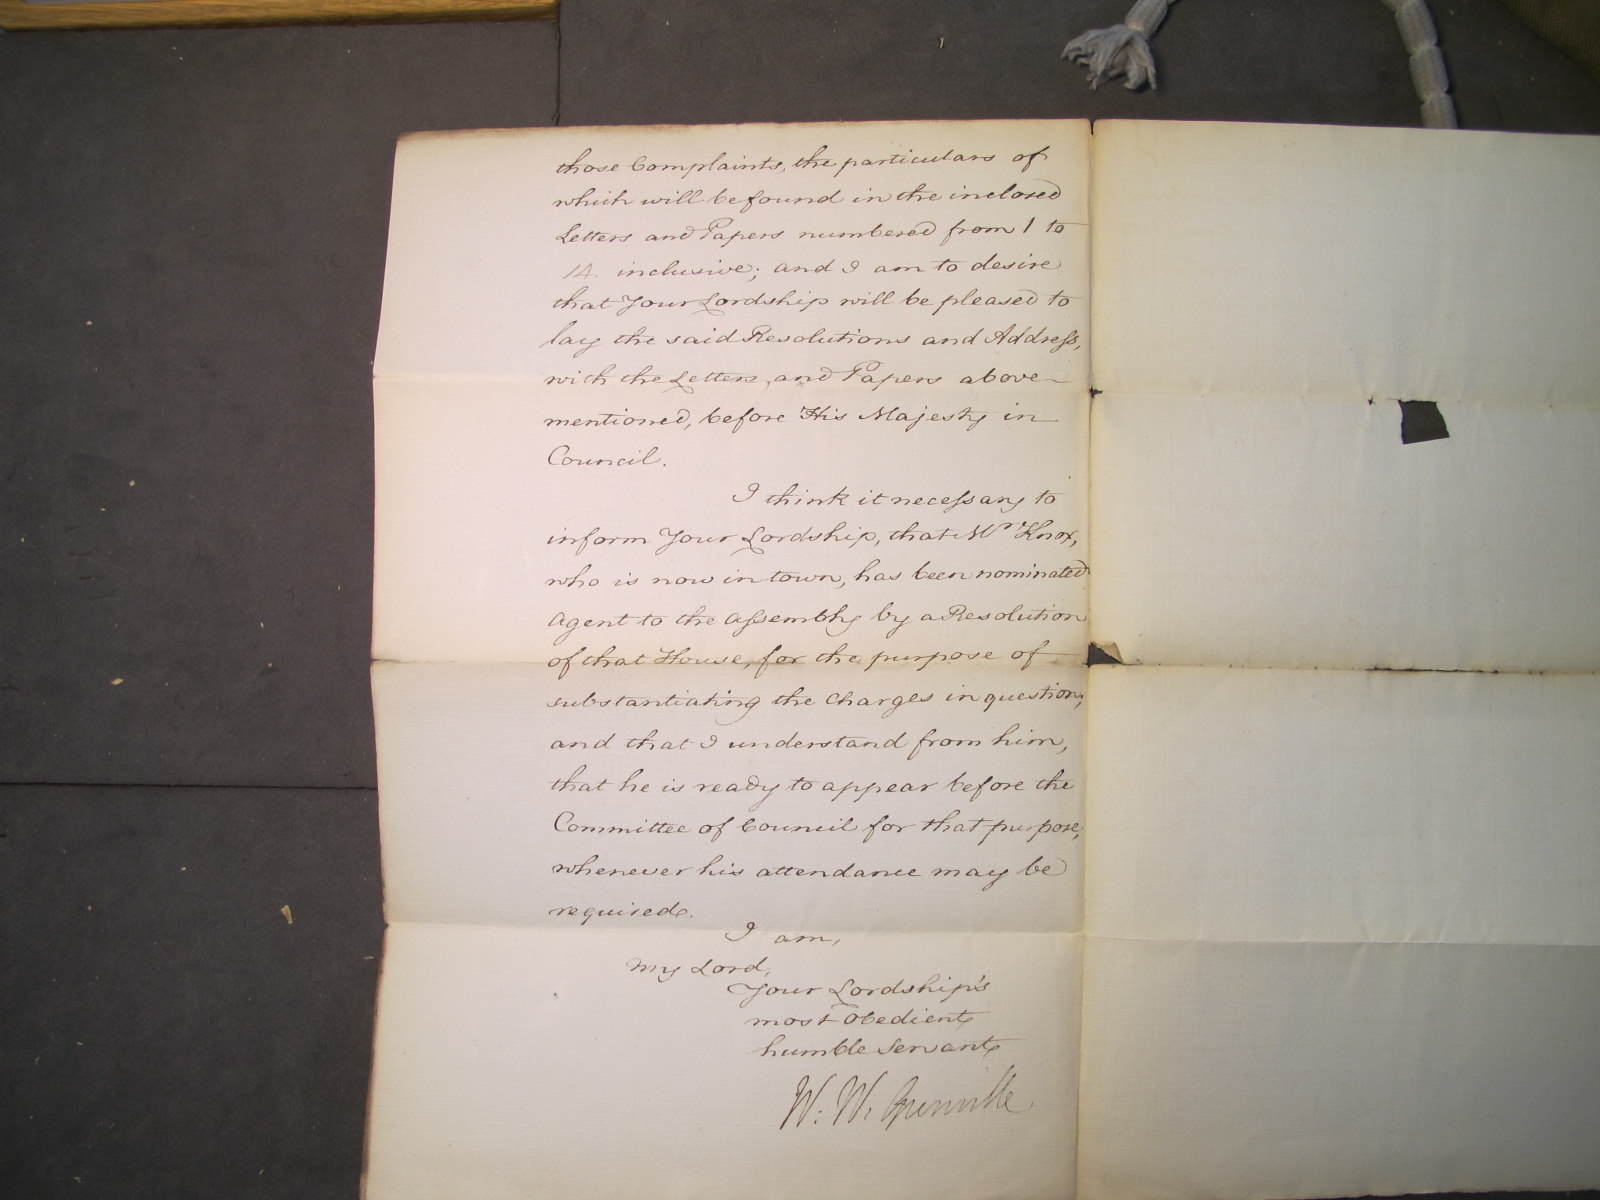 those Complaints, the particulars of
which will be found in the inclosed
Letters and Papers numbered from 1 to
14. inclusive; and I am to desire
that Your Lordship will be pleased to
lay the said Resolutions and Address,
with the Letters and Papers above
mentioned, before His Majesty in
Council.
I think it necessary to
inform Your Lordship, that Mr Knox,
who is now in town, has been nominated
Agent to the Assembly by a Resolution
of that House, for the purpose of
substantiating the Charges in question;
and that I understand from him,
that he is ready to appear before the
Committee of Council for that purpose,
whenever his attendance may be
required.
I am,
My Lord,
Your Lordship's
most obedient
humble Servant
W. W. Grenville